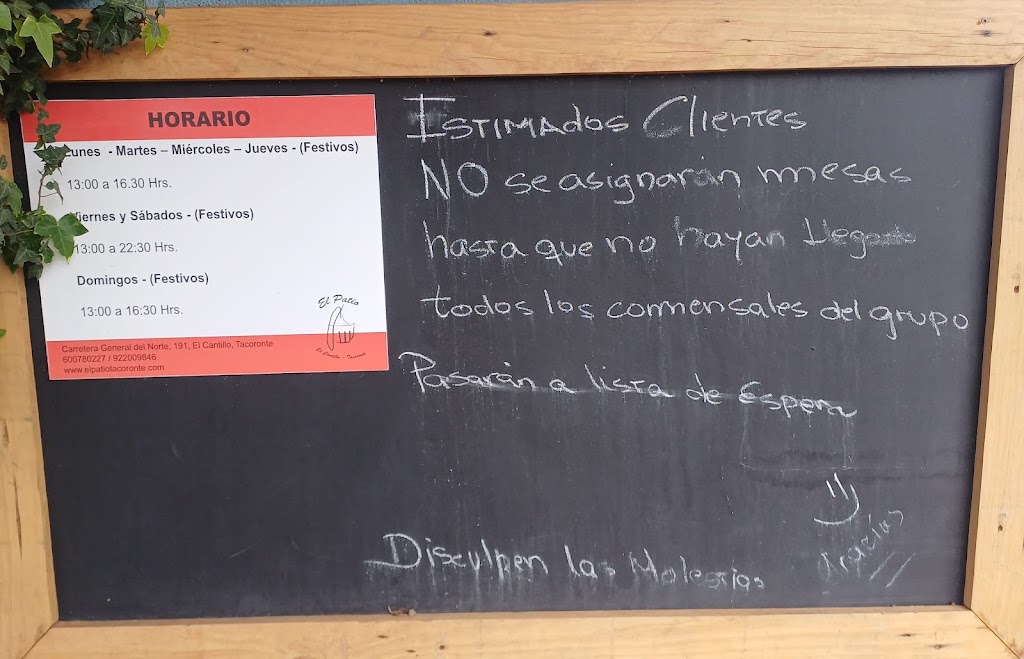 HORARIO
Lunes - Martes – Miércoles – Jueves - (Festivos)
13:00 a 16.30 Hrs.
Viernes y Sábados - (Festivos)
13:00 a 22:30 Hrs.
Domingos - (Festivos)
13:00 a 16:30 Hrs.
El Patio
El Cantillo - Tacoronte
Carretera General del Norte, 191, El Cantillo, Tacoronte
600780227 / 922009846
www.elpatiotacoronte.com
ESTIMADOS Clientes
NO se asignarán mesas
hasta que no hayan llegado
todos los comensales del grupo
Pasarán a lista de Espera
Disculpen las Molestias
Gracias